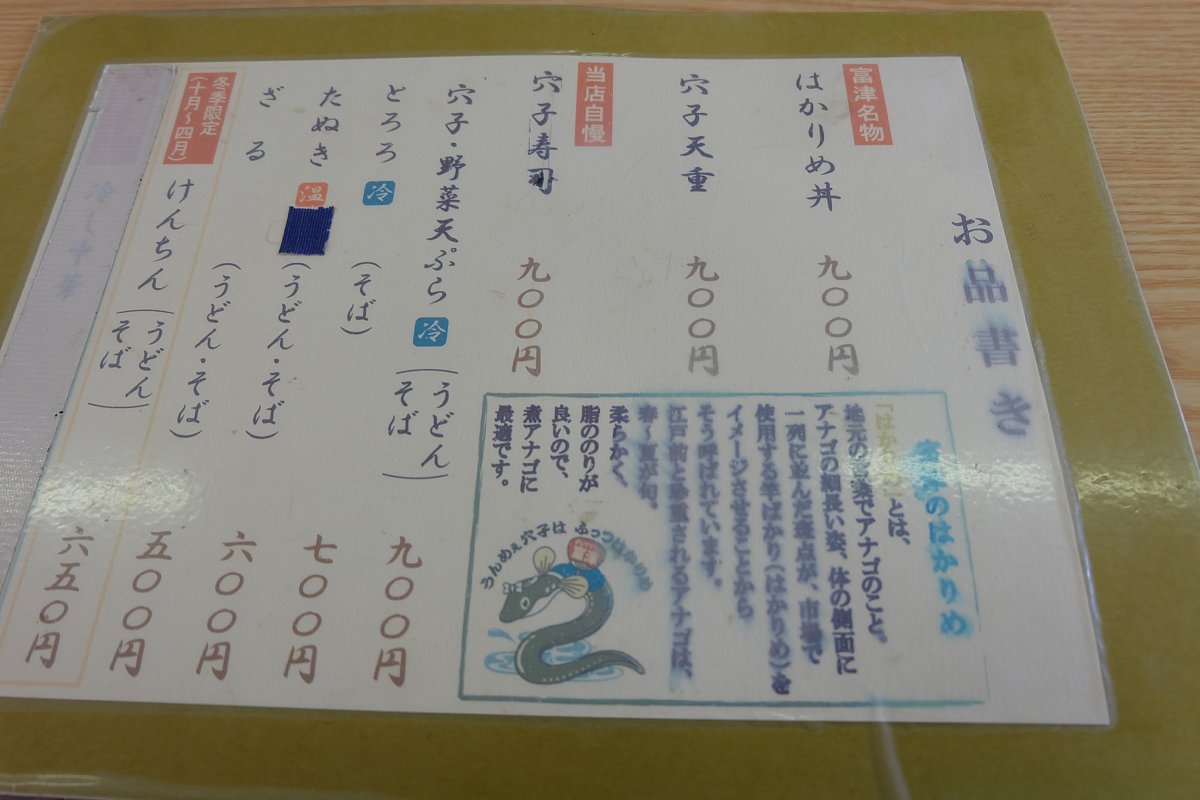 お品書き
富津名物
はかりめ丼 九〇〇円
穴子天重 九〇〇円
当店自慢
穴子寿司 九〇〇円
穴子・野菜天ぷら 冷 (うどん そば) 九〇〇円
とろろ 冷 (そば) 七〇〇円
たぬき 温 (うどん・そば) 六〇〇円
ざる (うどん・そば) 五〇〇円
冬季限定
(十月～四月)
けんちん (うどん そば) 六五〇円
冷し中華
富津のはかりめ
「はかりめ」とは、
地元の言葉でアナゴのこと。
アナゴの細長い姿、体の側面に
一列に並んだ斑点が、市場で
使用する竿ばかり(はかりめ)を
イメージさせることから
そう呼ばれています。
江戸前と珍重されるアナゴは、
春～夏が旬。
柔らかく、
脂ののりが
良いので、
煮アナゴに
最適です。
うんめぇ穴子は ふっつはかりめ
富津